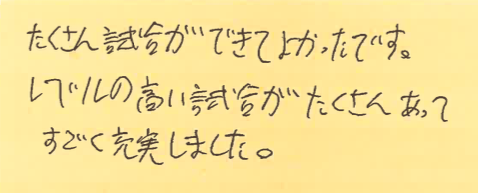 たくさん試合ができてよかったです。
レベルの高い試合がたくさんあって
すごく充実しました。